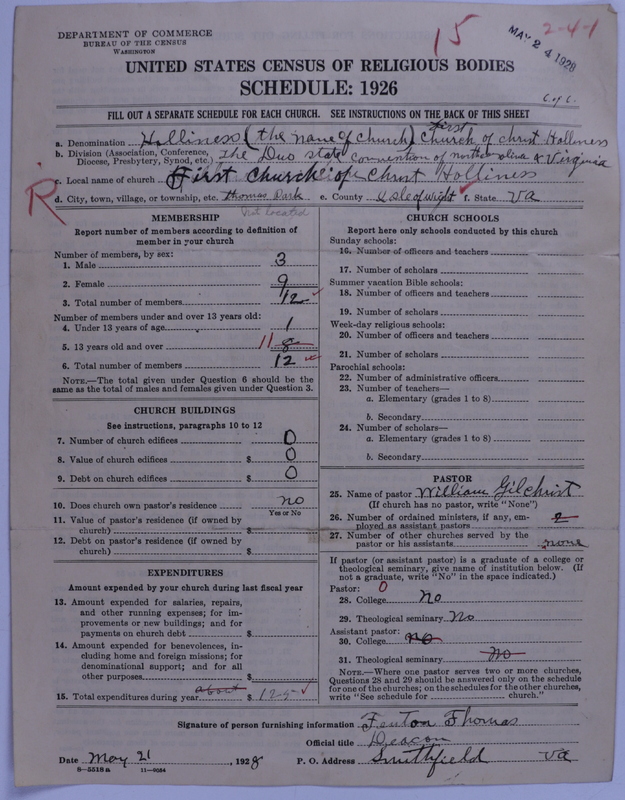 DEPARTMENT OF COMMERCE
BUREAU OF THE CENSUS
WASHINGTON
15
MAY 24 1928
2-4-1
UNITED STATES CENSUS OF RELIGIOUS BODIES
SCHEDULE: 1926
C. of C.
FILL OUT A SEPARATE SCHEDULE FOR EACH CHURCH. SEE INSTRUCTIONS ON THE BACK OF THIS SHEET
a. Denomination Holliness (the name of church) first Church of christ Holliness
b. Division (Association, Conference, Diocese, Presbytery, Synod, etc.) The Duo state convention of & Virginia
c. Local name of church First Church of Christ Holliness
R
d. City, town, village, or township, etc. Thomas Park e. County Isle of wight f. State Va
not located
MEMBERSHIP
Report number of members according to definition of
member in your church
Number of members, by sex:
1. Male 3
2. Female 9
3. Total number of members 12
Number of members under and over 13 years old:
4. Under 13 years of age 1
5. 13 years old and over 11 8
6. Total number of members 12
NOTE.—The total given under Question 6 should be
same as the total of males and females given under Question 3.
CHURCH BUILDINGS
See instructions, paragraphs 10 to 12
7. Number of church edifices 0
8. Value of church edifices $ 0
9. Debt on church edifices $ 0
10. Does church own pastor's residence no
Yes or No
11. Value of pastor's residence (if owned by
church) $
12. Debt on pastor's residence (if owned by
church) $
EXPENDITURES
Amount expended by church during last fiscal year
13. Amount expended for salaries, repairs,
and other running expenses; for im-
provements or new buildings; and for
payments on church debt $
14. Amount expended for benevolences, in-
cluding home and foreign missions; for
denominational support; and for all
other purposes $
about
15. Total expenditures during year $ 125
CHURCH SCHOOLS
Report here only schools conducted by this church
Sunday schools:
16. Number of officers and teachers
17. Number of scholars
Summer vacation Bible schools:
18. Number of officers and teachers
19. Number of scholars
Week-day religious schools:
20. Number of officers and teachers
21. Number of scholars
Parochial schools:
22. Number of administrative officers
23. Number of teachers—
a. Elementary (grades 1 to 8)
b. Secondary
24. Number of scholars—
a. Elementary (grades 1 to 8)
b. Secondary
PASTOR
25. Name of pastor William Gilchrist
(If church has no pastor, write "None")
26. Number of ordained ministers, if any, em-
ployed as assistant pastors 2
27. Number of other churches served by the
pastor or his assistants none
If pastor (or assistant pastor) is a graduate of a college or
theological seminary, give name of institution below. (If
not a graduate, write "No" in the space indicated.)
Pastor: 0
28. College No
29. Theological seminary No
Assistant pastor:
30. College no
31. Theological seminary No
NOTE.—Where one pastor serves two or more churches,
Questions 28 and 29 should be answered only on the schedule
for one of the churches; on the schedules for the other churches,
write "See schedule for church."
Signature of person furnishing information Fenton Thomas
Official title Deacon
Date May 21, 1928 P. O. Address Smithfield Va
8-5518 a 11-9084